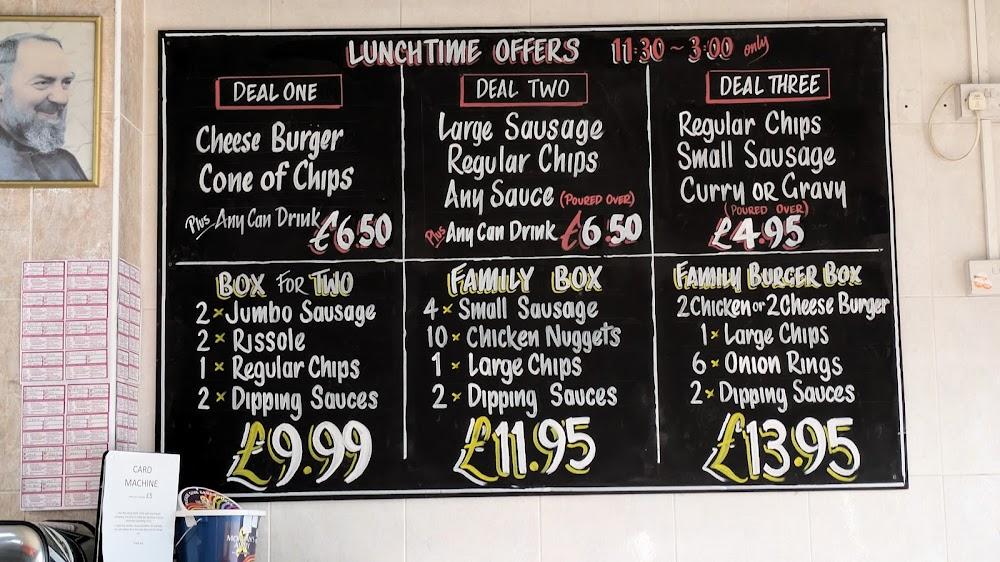 LUNCHTIME OFFERS 11:30 ~ 3:00 only
DEAL ONE
Cheese Burger
Cone of Chips
Plus Any Can Drink £6.50
DEAL TWO
Large Sausage
Regular Chips
Any Sauce (POURED OVER)
Plus Any Can Drink £6.50
DEAL THREE
Regular Chips
Small Sausage
Curry or Gravy
(POURED OVER)
£4.95
BOX FOR TWO
2 x Jumbo Sausage
2 x Rissole
1 x Regular Chips
2 x Dipping Sauces
£9.99
FAMILY BOX
4 x Small Sausage
10 x Chicken Nuggets
1 x Large Chips
2 x Dipping Sauces
£11.95
FAMILY BURGER BOX
2 Chicken or 2 Cheese Burger
1 x Large Chips
6 x Onion Rings
2 x Dipping Sauces
£13.95
CARD
MACHINE
£5